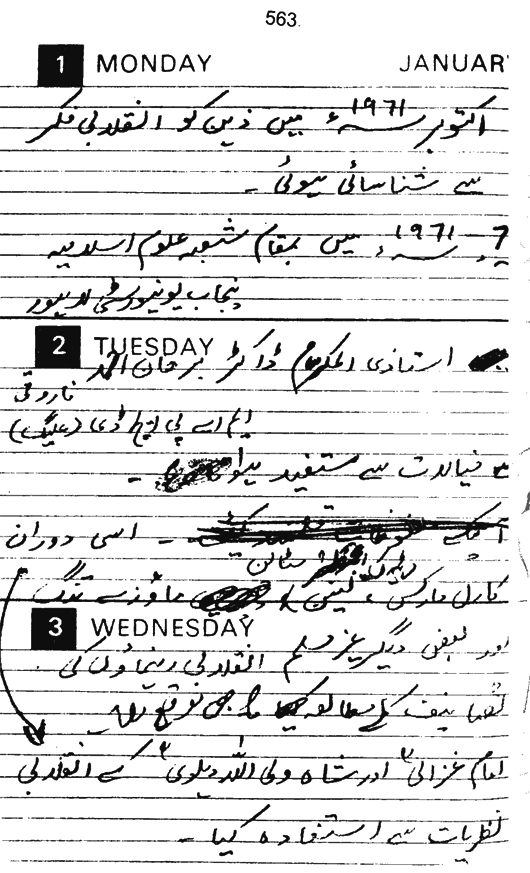 563.
1 MONDAY JANUAR
اکتوبر ۱۹۷۱ء میں ذہن کو انقلابی فکر
سے شناسائی ہوئی۔
۱۹۷۱ء میں بمقام شعبہ علوم اسلامیہ
پنجاب یونیورسٹی لاہور
2 TUESDAY
استاذی المکرم ڈاکٹر برہان احمد
فاروقی
ایم اے پی ایچ ڈی (علیگ)
کے خیالات سے مستفید ہوا۔
۔ اسی دوران
سٹالن
کارل مارکس، لینن ماؤزے تنگ
3 WEDNESDAY
اور بعض دیگر غیر مسلم انقلابی رہنماؤں کی
تصانیف کے مطالعہ کا بھی موقع ملا۔
امام غزالیؒ اور شاہ ولی اللہ دہلویؒ کے انقلابی
نظریات سے استفادہ کیا۔